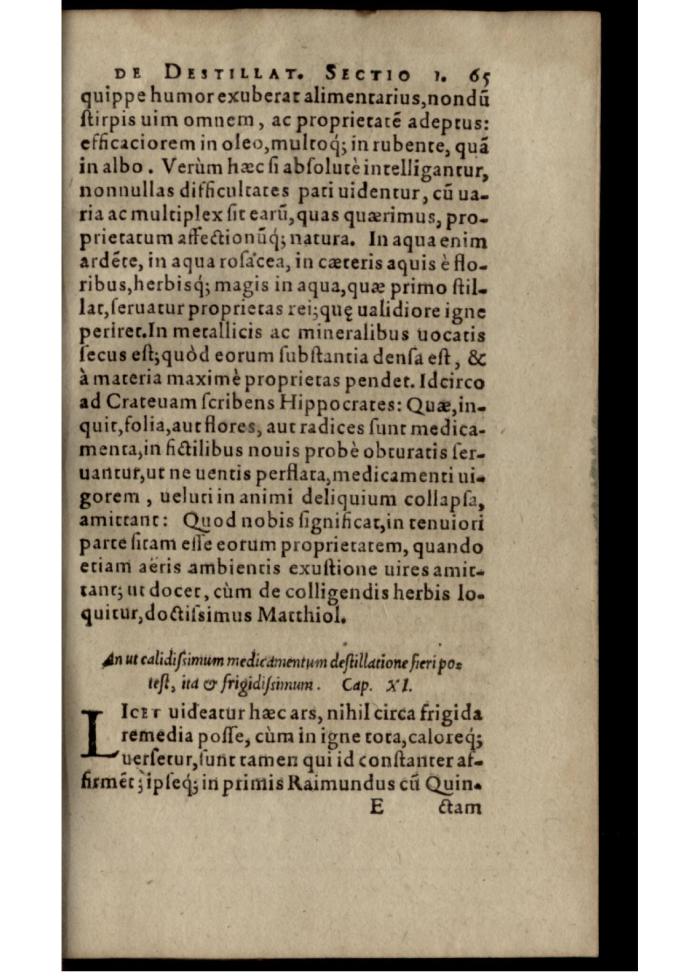 DE DESTILLAT. SECTIO 1. 65
quippe humor exuberat alimentarius, nondũ
ſtirpis uim omnem, ac proprietatẽ adeptus:
efficaciorem in oleo, multoq́; in rubente, quã
in albo. Verùm hæc ſi abſolutè intelligantur,
nonnullas difficultates pati uidentur, cũ ua-
ria ac multiplex ſit earũ, quas quærimus, pro-
prietatum affectionũq́; natura. In aqua enim
ardẽte, in aqua roſacea, in cæteris aquis è flo-
ribus, herbisq́; magis in aqua, quæ primo ſtil-
lat, ſeruatur proprietas rei; quę ualidiore igne
periret. In metallicis ac mineralibus uocatis
ſecus eſt; quòd eorum ſubſtantia denſa eſt, &
à materia maximè proprietas pendet. Idcirco
ad Crateuam ſcribens Hippocrates: Quæ, in-
quit, folia, aut flores, aut radices ſunt medica-
menta, in fictilibus nouis probè obturatis ſer-
uantur, ut ne uentis perflata, medicamenti ui-
gorem, ueluti in animi deliquium collapſa,
amittant: Quod nobis ſignificat, in tenuiori
parte ſitam eſſe eorum proprietatem, quando
etiam aëris ambientis exuſtione uires amit-
tant; ut docet, cùm de colligendis herbis lo-
quitur, doctiſsimus Matthiol.
An ut calidiſsimum medicamentum deſtillatione fieri po-
teſt, ita & frigidiſsimum. Cap. XI.
LICET uideatur hæc ars, nihil circa frigida
remedia poſſe, cùm in igne tota, caloreq́;
uerſetur, ſunt tamen qui id conſtanter af-
firmẽt; ipſeq́; in primis Raimundus cũ Quin-
E ctam